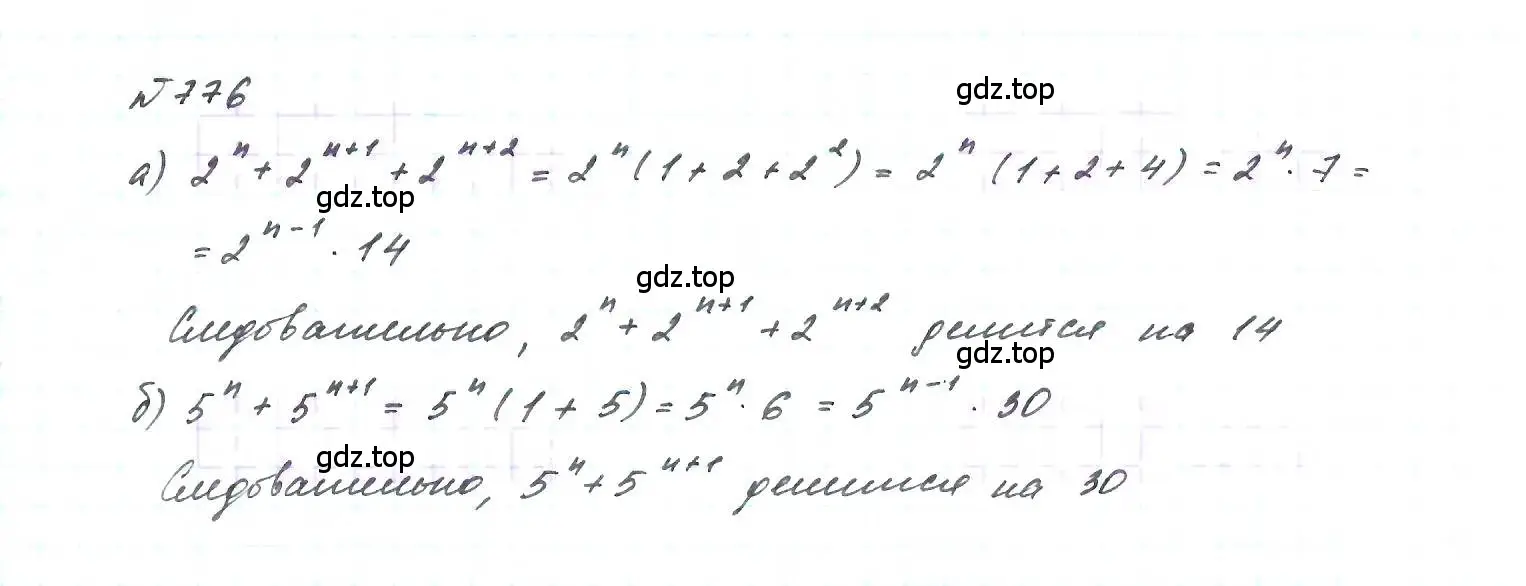 № 776
gdz.top
а) 2ⁿ + 2ⁿ⁺¹ + 2ⁿ⁺² = 2ⁿ (1 + 2 + 2²) = 2ⁿ (1 + 2 + 4) = 2ⁿ · 7 =
gdz.top
= 2ⁿ⁻¹ · 14
gdz.top
Следовательно, 2ⁿ + 2ⁿ⁺¹ + 2ⁿ⁺² делится на 14
gdz.top
б) 5ⁿ + 5ⁿ⁺¹ = 5ⁿ (1 + 5) = 5ⁿ · 6 = 5ⁿ⁻¹ · 30
gdz.top
Следовательно, 5ⁿ + 5ⁿ⁺¹ делится на 30